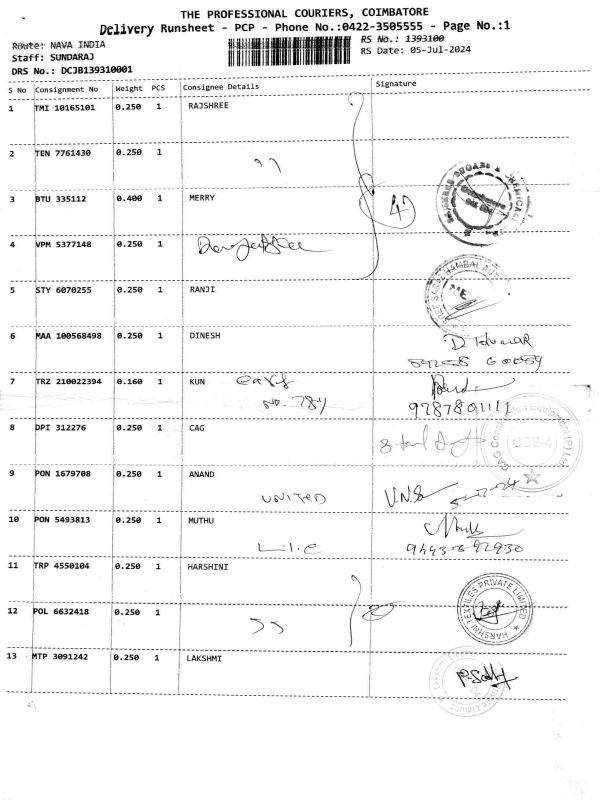 THE PROFESSIONAL COURIERS, COIMBATORE
Delivery Runsheet - PCP - Phone No.:0422-3505555 - Page No.:1
Route: NAVA INDIA
RS No.: 1393100
Staff: SUNDARAJ
RS Date: 05-Jul-2024
DRS No.: DCJB139310001
S No Consignment No Weight PCS Consignee Details Signature
1 TMI 10165101 0.250 1 RAJSHREE
2 TEN 7761430 0.250 1 ,,
3 BTU 335112 0.400 1 MERRY 4
4 VPM 5377148 0.250 1
5 STY 6070255 0.250 1 RANJI
6 MAA 100568498 0.250 1 DINESH
7 TRZ 210022394 0.160 1 KUN
NO. 784 9787801111
8 DPI 312276 0.250 1 CAG
CAG Construction Equipment (P) Ltd
CBE-4
9 PON 1679708 0.250 1 ANAND
UNITED V.N.S
10 PON 5493813 0.250 1 MUTHU
L.I.C
11 TRP 4550104 0.250 1 HARSHINI
HARSHNI TEXTILES PRIVATE LIMITED
12 POL 6632418 0.250 1 ,,
13 MTP 3091242 0.250 1 LAKSHMI